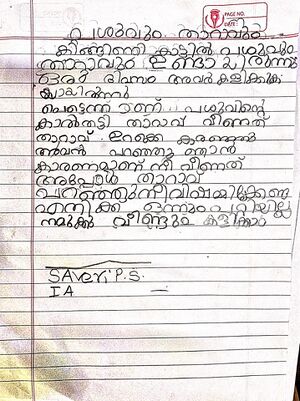 PAGE NO.
DATE:
പശുവും താറാവും
കിങ്ങിണി കാട്ടിൽ പശുവും
താറാവും ഉണ്ടായിരുന്നു
ഒരു ദിവസം അവർ കളിക്കുക
യായിരുന്നു
പെട്ടെന്ന് പശുവിന്റെ
കാൽതട്ടി താറാവ് വീണത്
താറാവ് ഉറക്കെ കരഞ്ഞു
അവൻ പറഞ്ഞു ഞാൻ
കാരണമാണ് നീ വീണത്
അപ്പോൾ താറാവ്
പറഞ്ഞു നീ വിഷമിക്കേണ്ട
എനിക്ക് ഒന്നും പറ്റിയില്ല
നമുക്ക് വീണ്ടും കളിക്കാം
SAveri P.S.
IA